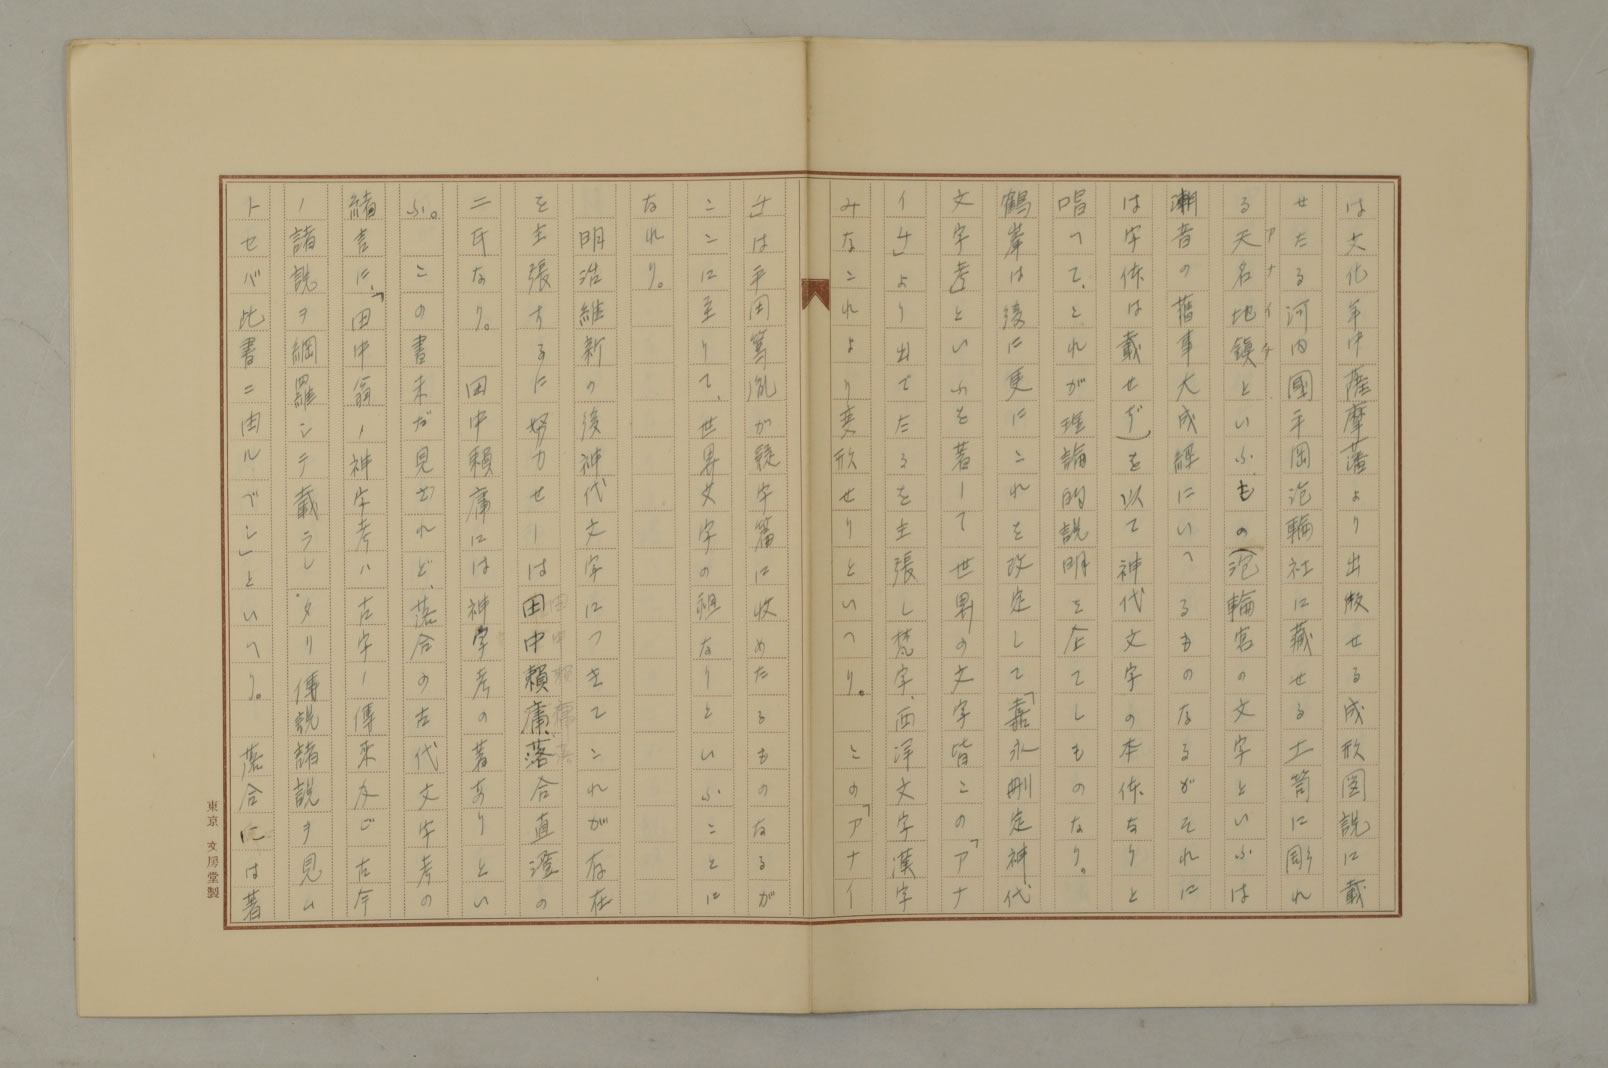 は文化年中薩摩藩より出版せる成形図説に載
せたる河内國平岡泡輪社に蔵せる土笥に彫れ
る天名地鎮といふもの(泡輪宮の文字といふは
アナイチ
潮音の舊事大成経にいへるものなるがそれに
は字体は載せず)を以て神代文字の本体なりと
唱へて、これが理論的説明を企てしものなり。
鶴峯は後に更にこれを改定して「嘉永刪定神代
文字考」といふを著して世界の文字皆この「アナ
イチ」より出でたるを主張し梵字、西洋文字漢字
みなこれより変形せりといへり。この「アナイ
チ」は平田篤胤が疑字篇に收めたるものなるが
ここに至りて、世界文字の祖なりといふことに
なれり。
明治維新の後神代文字につきてこれが存在
を主張するに努力せしは田中頼庸、落合直澄の
田中頼庸落
二氏なり。田中頼庸には神字考の著ありとい
ふ。この書未だ見ざれど、落合の古代文字考の
緒言に、「田中翁ノ神字考ハ古字ノ傳来及ビ古今
ノ諸説ヲ網羅シテ載ラレタリ傳説諸説ヲ見ム
トセバ此書ニ由ルベシ」といへり。落合には著
東京 文房堂製